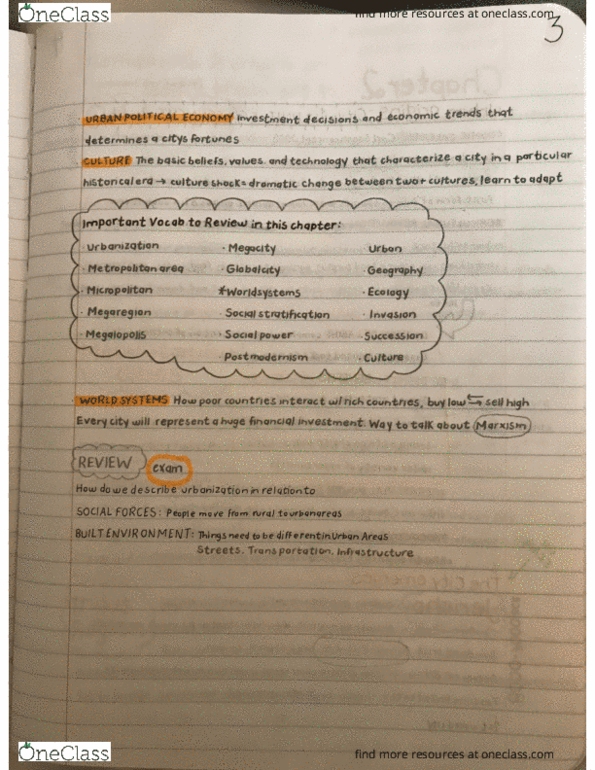 OneClass
find more resources at oneclass.com
3
· URBAN POLITICAL ECONOMY investment decisions and economic trends that
determines a citys fortunes
CULTURE The basic beliefs, values, and technology that characterize a city in a particular
historical era → culture shock = dramatic change between two+ cultures, learn to adapt
Important Vocab to Review in this chapter:
· Urbanization · Megacity · Urban
· Metropolitan area · Globalcity · Geography
· Micropolitan *Worldsystems · Ecology
· Megaregion · Social stratification · Invasion
· Megalopolis · Social power · Succession
· Postmodernism · Culture
· WORLD SYSTEMS How poor countries interact w/ rich countries, buy low ⇆ sell high
Every city will represent a huge financial investment. Way to talk about Marxism
REVIEW exam
How do we describe urbanization in relation to
SOCIAL FORCES: People move from rural to urban areas
BUILT ENVIRONMENT: Things need to be different in Urban Areas
Streets, Transportation, Infrastructure
OneClass
find more resources at oneclass.com